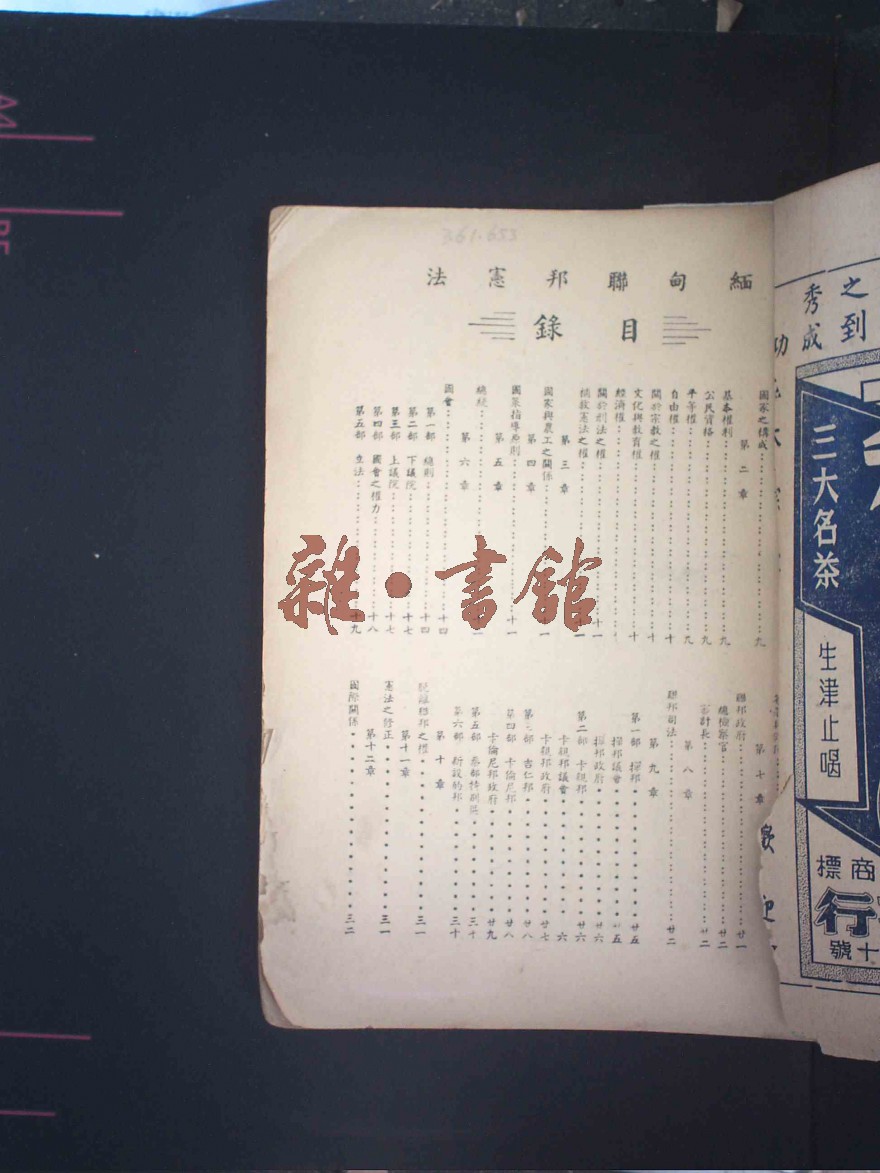 361.653
緬甸聯邦憲法
目錄
國家之構成 九
第二章
基本權利 九
公民資格 九
平等權 九
自由權 十
關於宗教之權 十
文化與教育權 十
經濟權
關於刑法之權 十一
憲法之權 十一
第三章
國家與農工之關係
第四章
國策指導原則 十一
第五章
總統
第六章
國會 十四
第一部 總則 十四
第二部 下議院 十七
第三部 上議院 十七
第四部 國會之權力 十八
第五部 立法 十九
第七章
聯邦政府 廿一
總檢察官 廿二
審計長 廿二
第八章
聯邦司法 廿二
第九章
第一部 撣邦 廿五
撣邦議會
撣邦政府 廿六
第二部 卡親邦 廿六
卡親邦議會
卡親邦政府 廿七
第三部 吉仁邦 廿八
第四部 卡倫尼邦 廿八
卡倫尼邦政府 廿九
第五部 秦部特別區 三十
第六部 新設的邦 三十
第十章
脫離聯邦之權 三一
第十一章
憲法之修正 三一
第十二章
國際關係 三二
雜·書館
之到
秀成
功
三大名茶
生津止喝
商標
行
十號
歡迎
A4